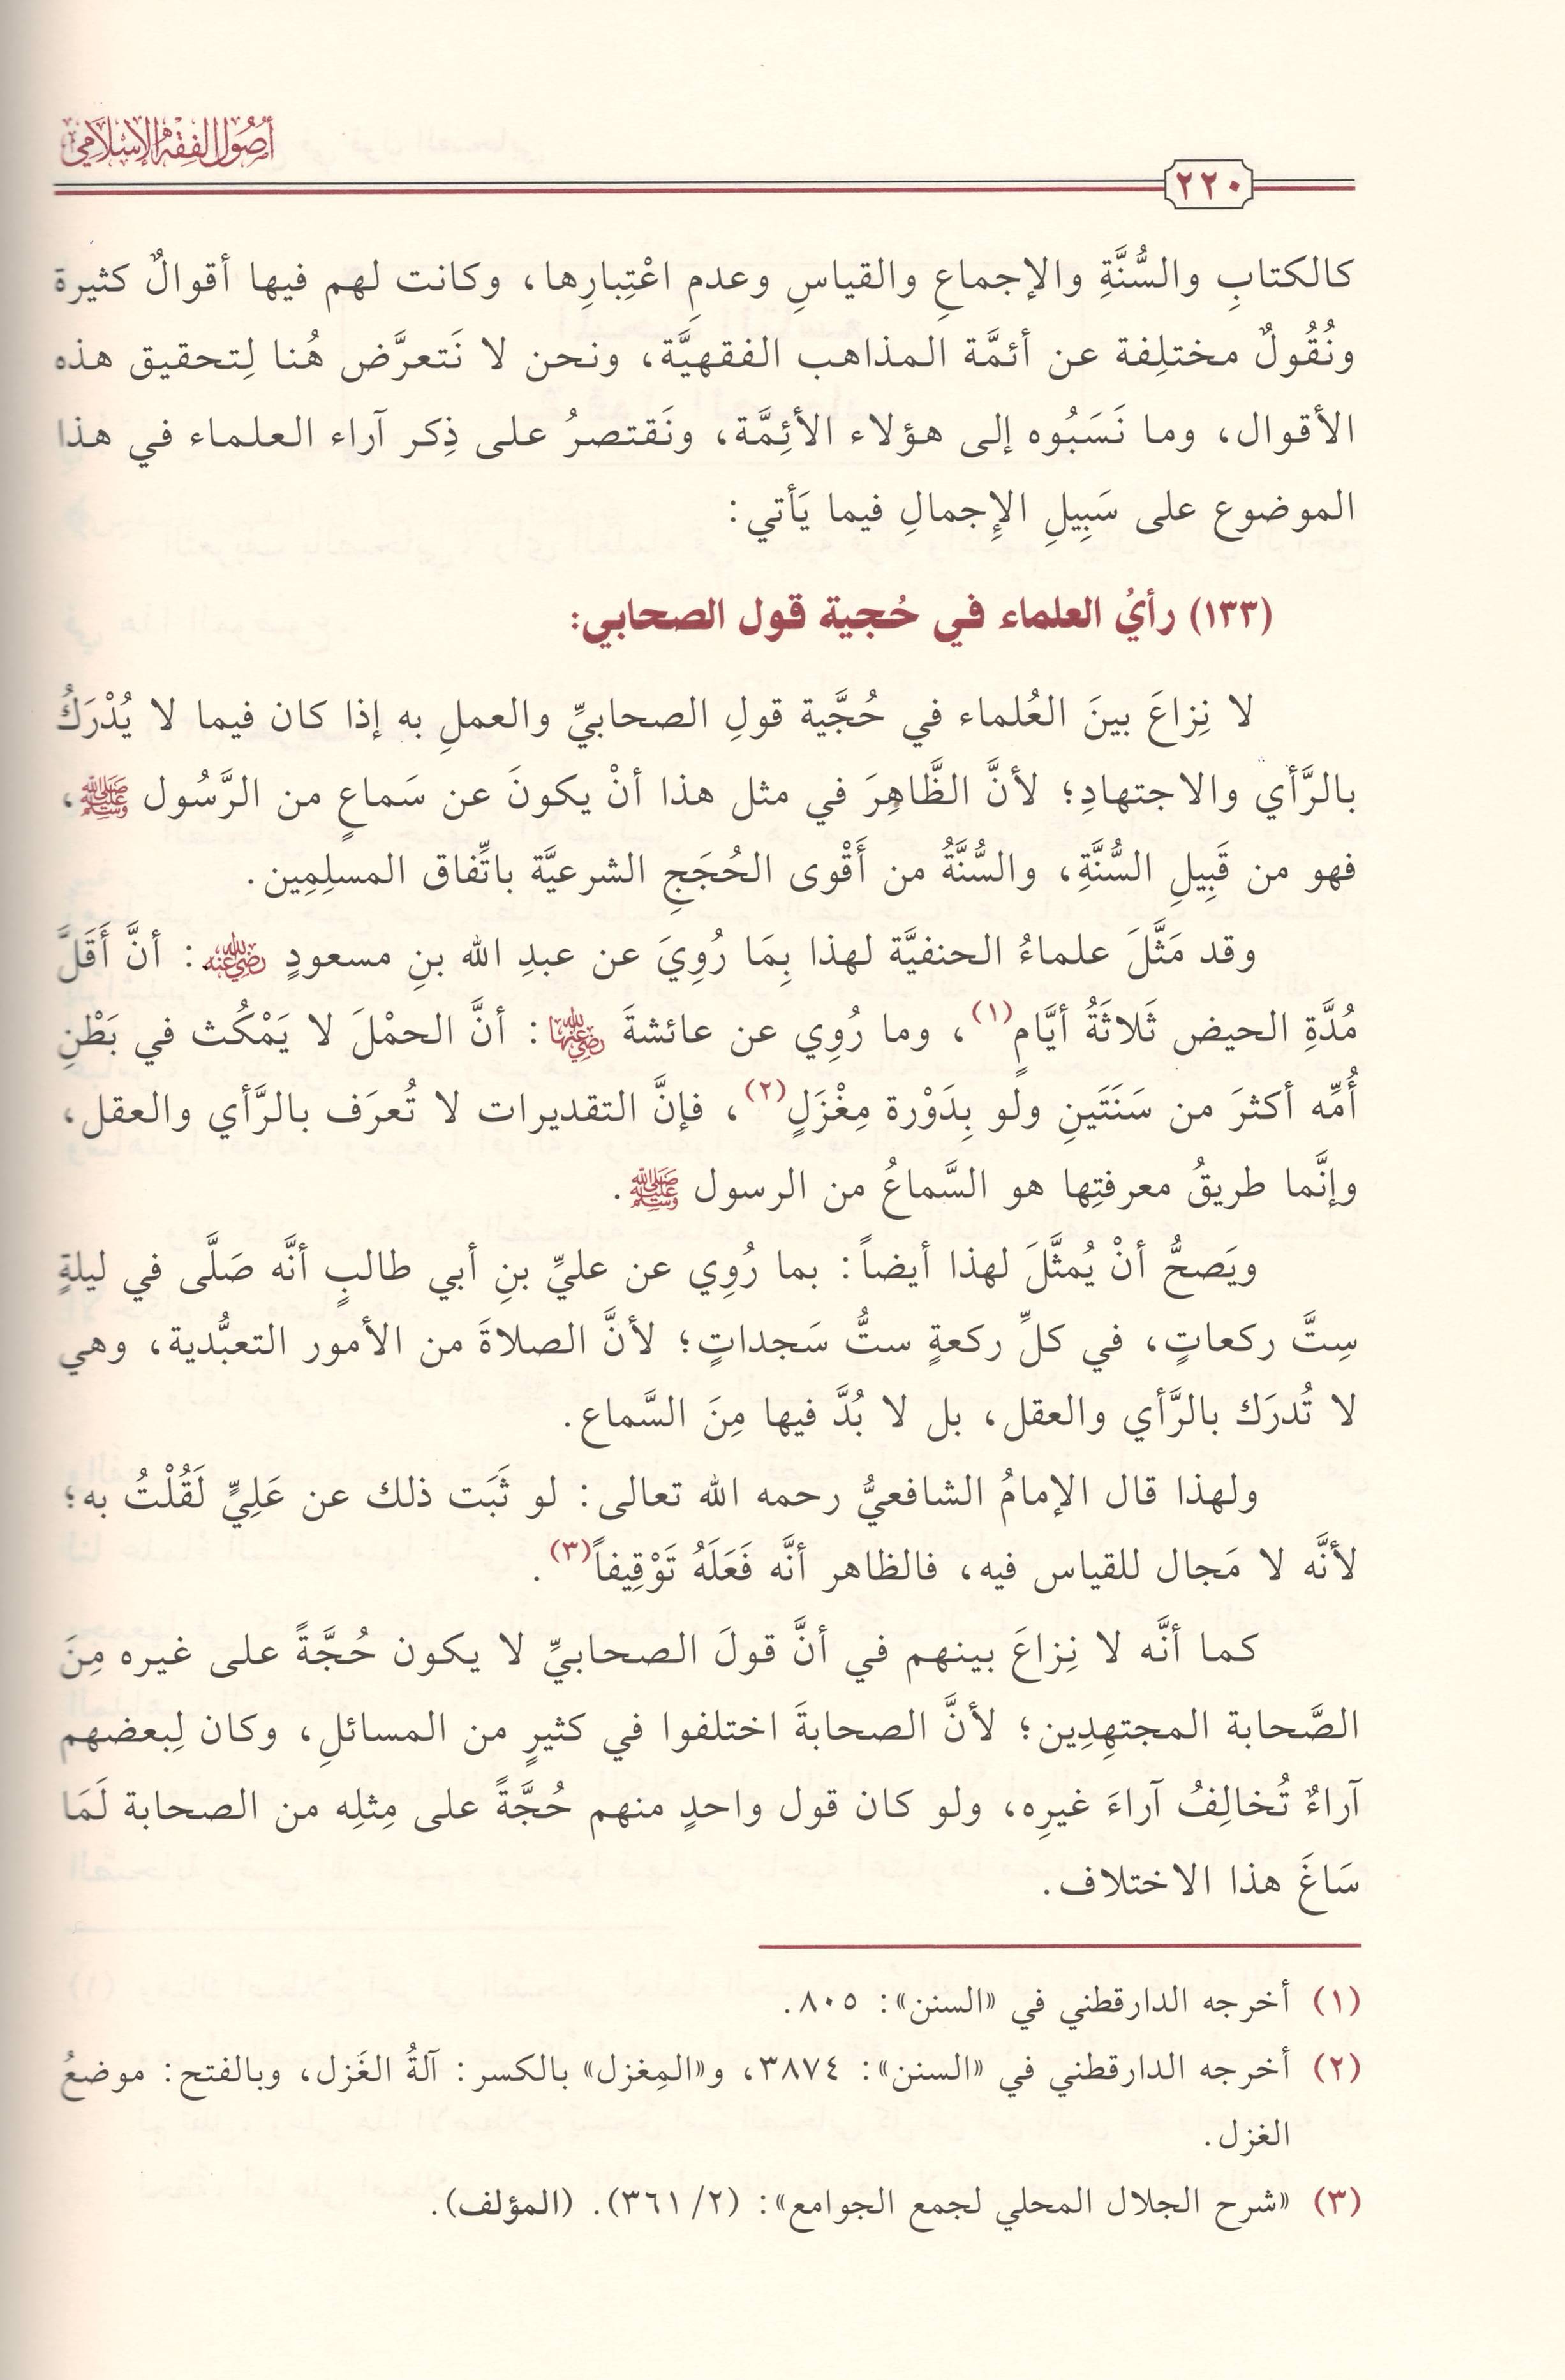 أُصُولُ الفِقْهِ الإِسْلَامِيِّ
٢٢٠
كالكتابِ والسُّنَّةِ والإجماعِ والقياسِ وعدمِ اعْتِبارِها، وكانت لهم فيها أقوالٌ كثيرة
ونُقُولٌ مختلِفة عن أئمَّة المذاهب الفقهيَّة، ونحن لا نَتعرَّض هُنا لِتحقيق هذه
الأقوال، وما نَسَبُوه إلى هؤلاء الأئِمَّة، ونَقتصرُ على ذِكر آراء العلماء في هذا
الموضوع على سَبِيلِ الإِجمالِ فيما يَأتي:
(١٣٣) رأيُ العلماء في حُجية قول الصحابي:
لا نِزاعَ بينَ العُلماء في حُجَّية قولِ الصحابيِّ والعملِ به إذا كان فيما لا يُدْرَكُ
بالرَّأي والاجتهادِ؛ لأنَّ الظَّاهِرَ في مثل هذا أنْ يكونَ عن سَماعٍ من الرَّسُول ﷺ،
فهو من قَبِيلِ السُّنَّةِ، والسُّنَّةُ من أَقْوى الحُجَجِ الشرعيَّة باتِّفاق المسلِمِين.
وقد مَثَّلَ علماءُ الحنفيَّة لهذا بِمَا رُوِيَ عن عبدِ الله بنِ مسعودٍ رضي الله عنه: أنَّ أَقَلَّ
مُدَّةِ الحيض ثَلاثَةُ أيَّامٍ(١)، وما رُوِي عن عائشةَ رضي الله عنها: أنَّ الحمْلَ لا يَمْكُث في بَطْنِ
أُمِّه أكثرَ من سَنَتَينِ ولو بِدَوْرة مِغْزَلٍ(٢)، فإنَّ التقديرات لا تُعرَف بالرَّأي والعقل،
وإنَّما طريقُ معرفتِها هو السَّماعُ من الرسول ﷺ.
ويَصحُّ أنْ يُمثَّلَ لهذا أيضاً: بما رُوِي عن عليِّ بنِ أبي طالبٍ أنَّه صَلَّى في ليلةٍ
سِتَّ ركعاتٍ، في كلِّ ركعةٍ ستُّ سَجداتٍ؛ لأنَّ الصلاةَ من الأمور التعبُّدية، وهي
لا تُدرَك بالرَّأي والعقل، بل لا بُدَّ فيها مِنَ السَّماع.
ولهذا قال الإمامُ الشافعيُّ رحمه الله تعالى: لو ثَبَت ذلك عن عَلِيٍّ لَقُلْتُ به؛
لأنَّه لا مَجال للقياس فيه، فالظاهر أنَّه فَعَلَهُ تَوْقِيفاً(٣).
كما أنَّه لا نِزاعَ بينهم في أنَّ قولَ الصحابيِّ لا يكون حُجَّةً على غيره مِنَ
الصَّحابة المجتهِدِين؛ لأنَّ الصحابةَ اختلفوا في كثيرٍ من المسائلِ، وكان لِبعضهم
آراءٌ تُخالِفُ آراءَ غيرِه، ولو كان قول واحدٍ منهم حُجَّةً على مِثلِه من الصحابة لَمَا
سَاغَ هذا الاختلاف.
(١) أخرجه الدارقطني في «السنن»: ٨٠٥.
(٢) أخرجه الدارقطني في «السنن»: ٣٨٧٤، و«المِغزل» بالكسر: آلةُ الغَزل، وبالفتح: موضعُ
الغزل.
(٣) «شرح الجلال المحلي لجمع الجوامع»: (٢/ ٣٦١). (المؤلف).